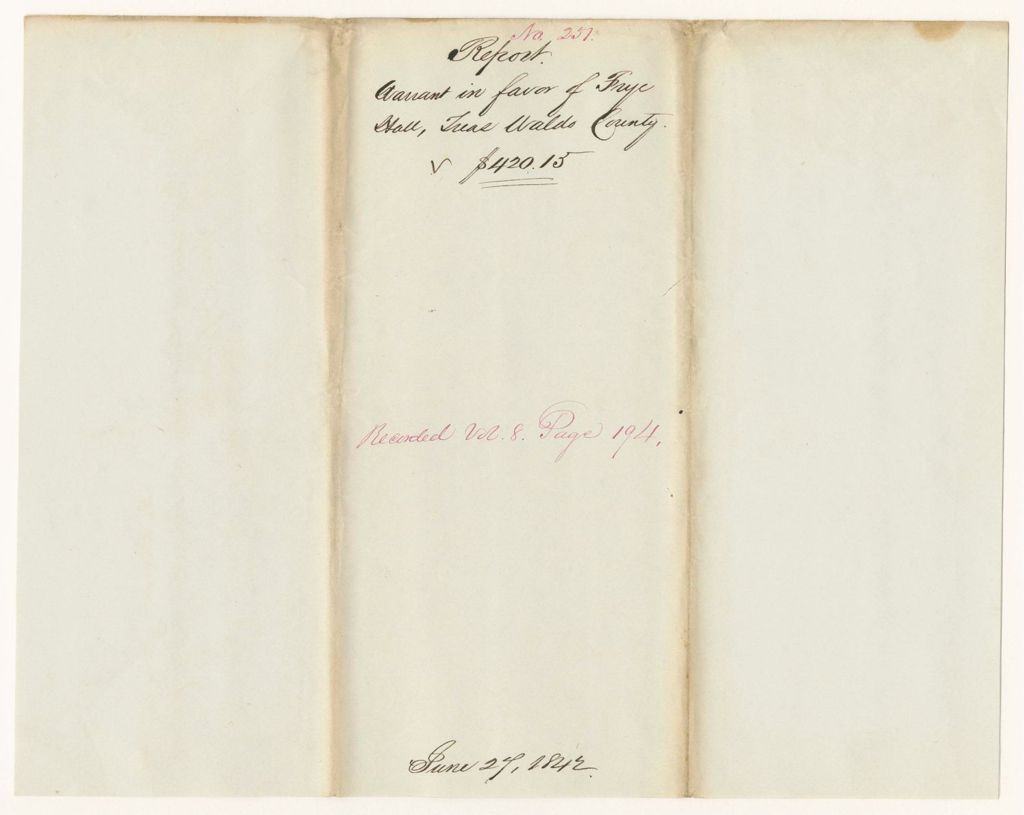 No. 251.
Report.
Warrant in favor of Frye
Hall, Treas Waldo County.
✓ $420.15
Recorded Vol. 8. Page 194.
June 27, 1842.